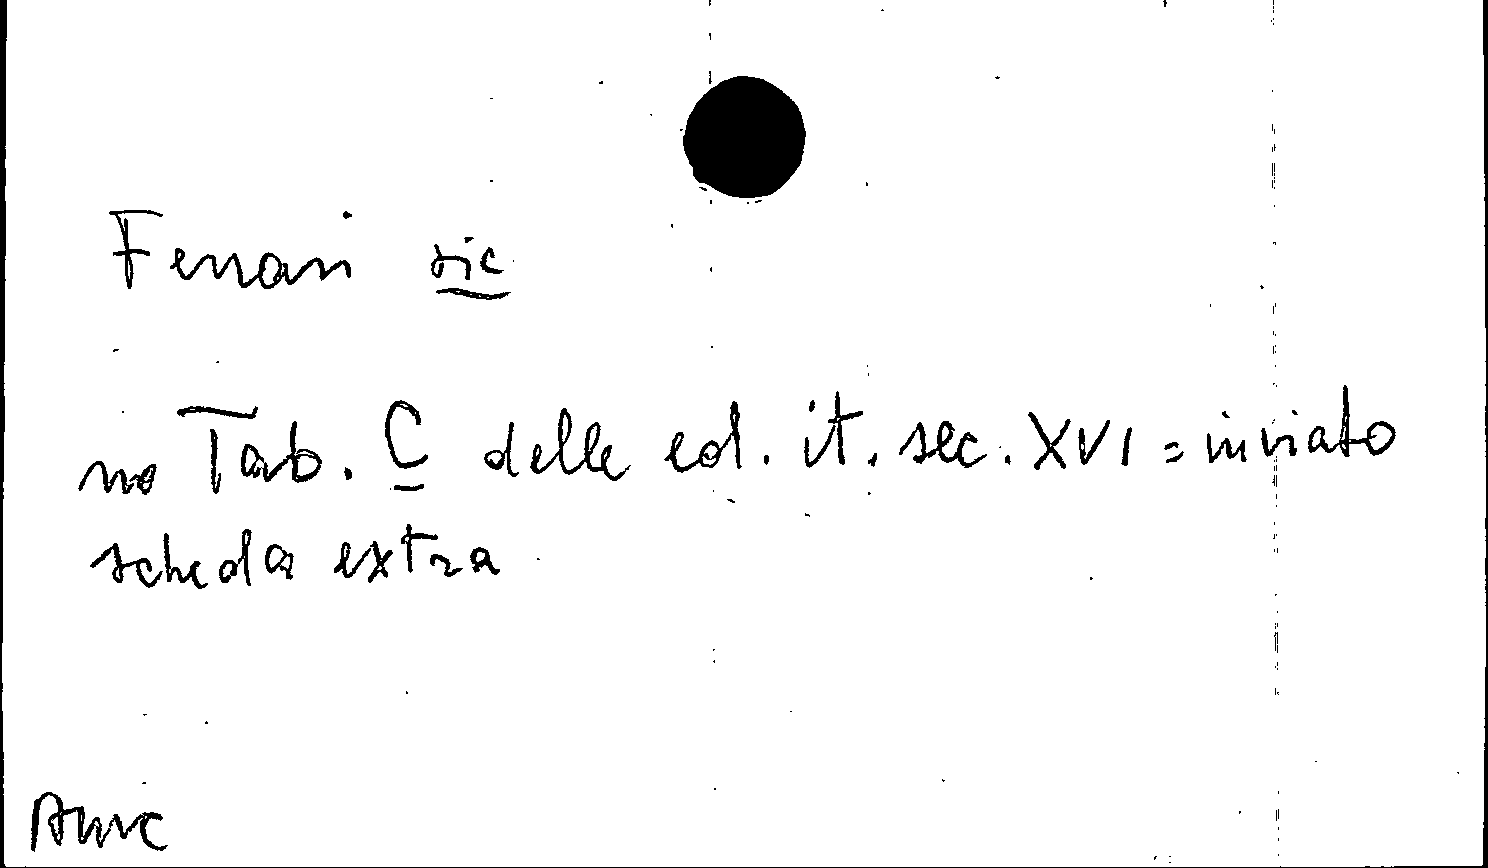 Ferrari sic
no Tab. C delle ed. it. sec. XVI = inviato
scheda extra